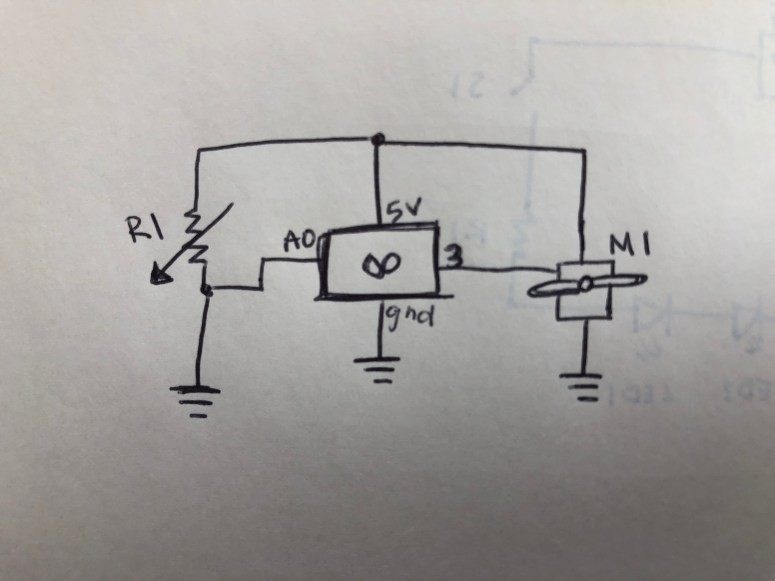 5V
R1
A0
3
M1
gnd
S1